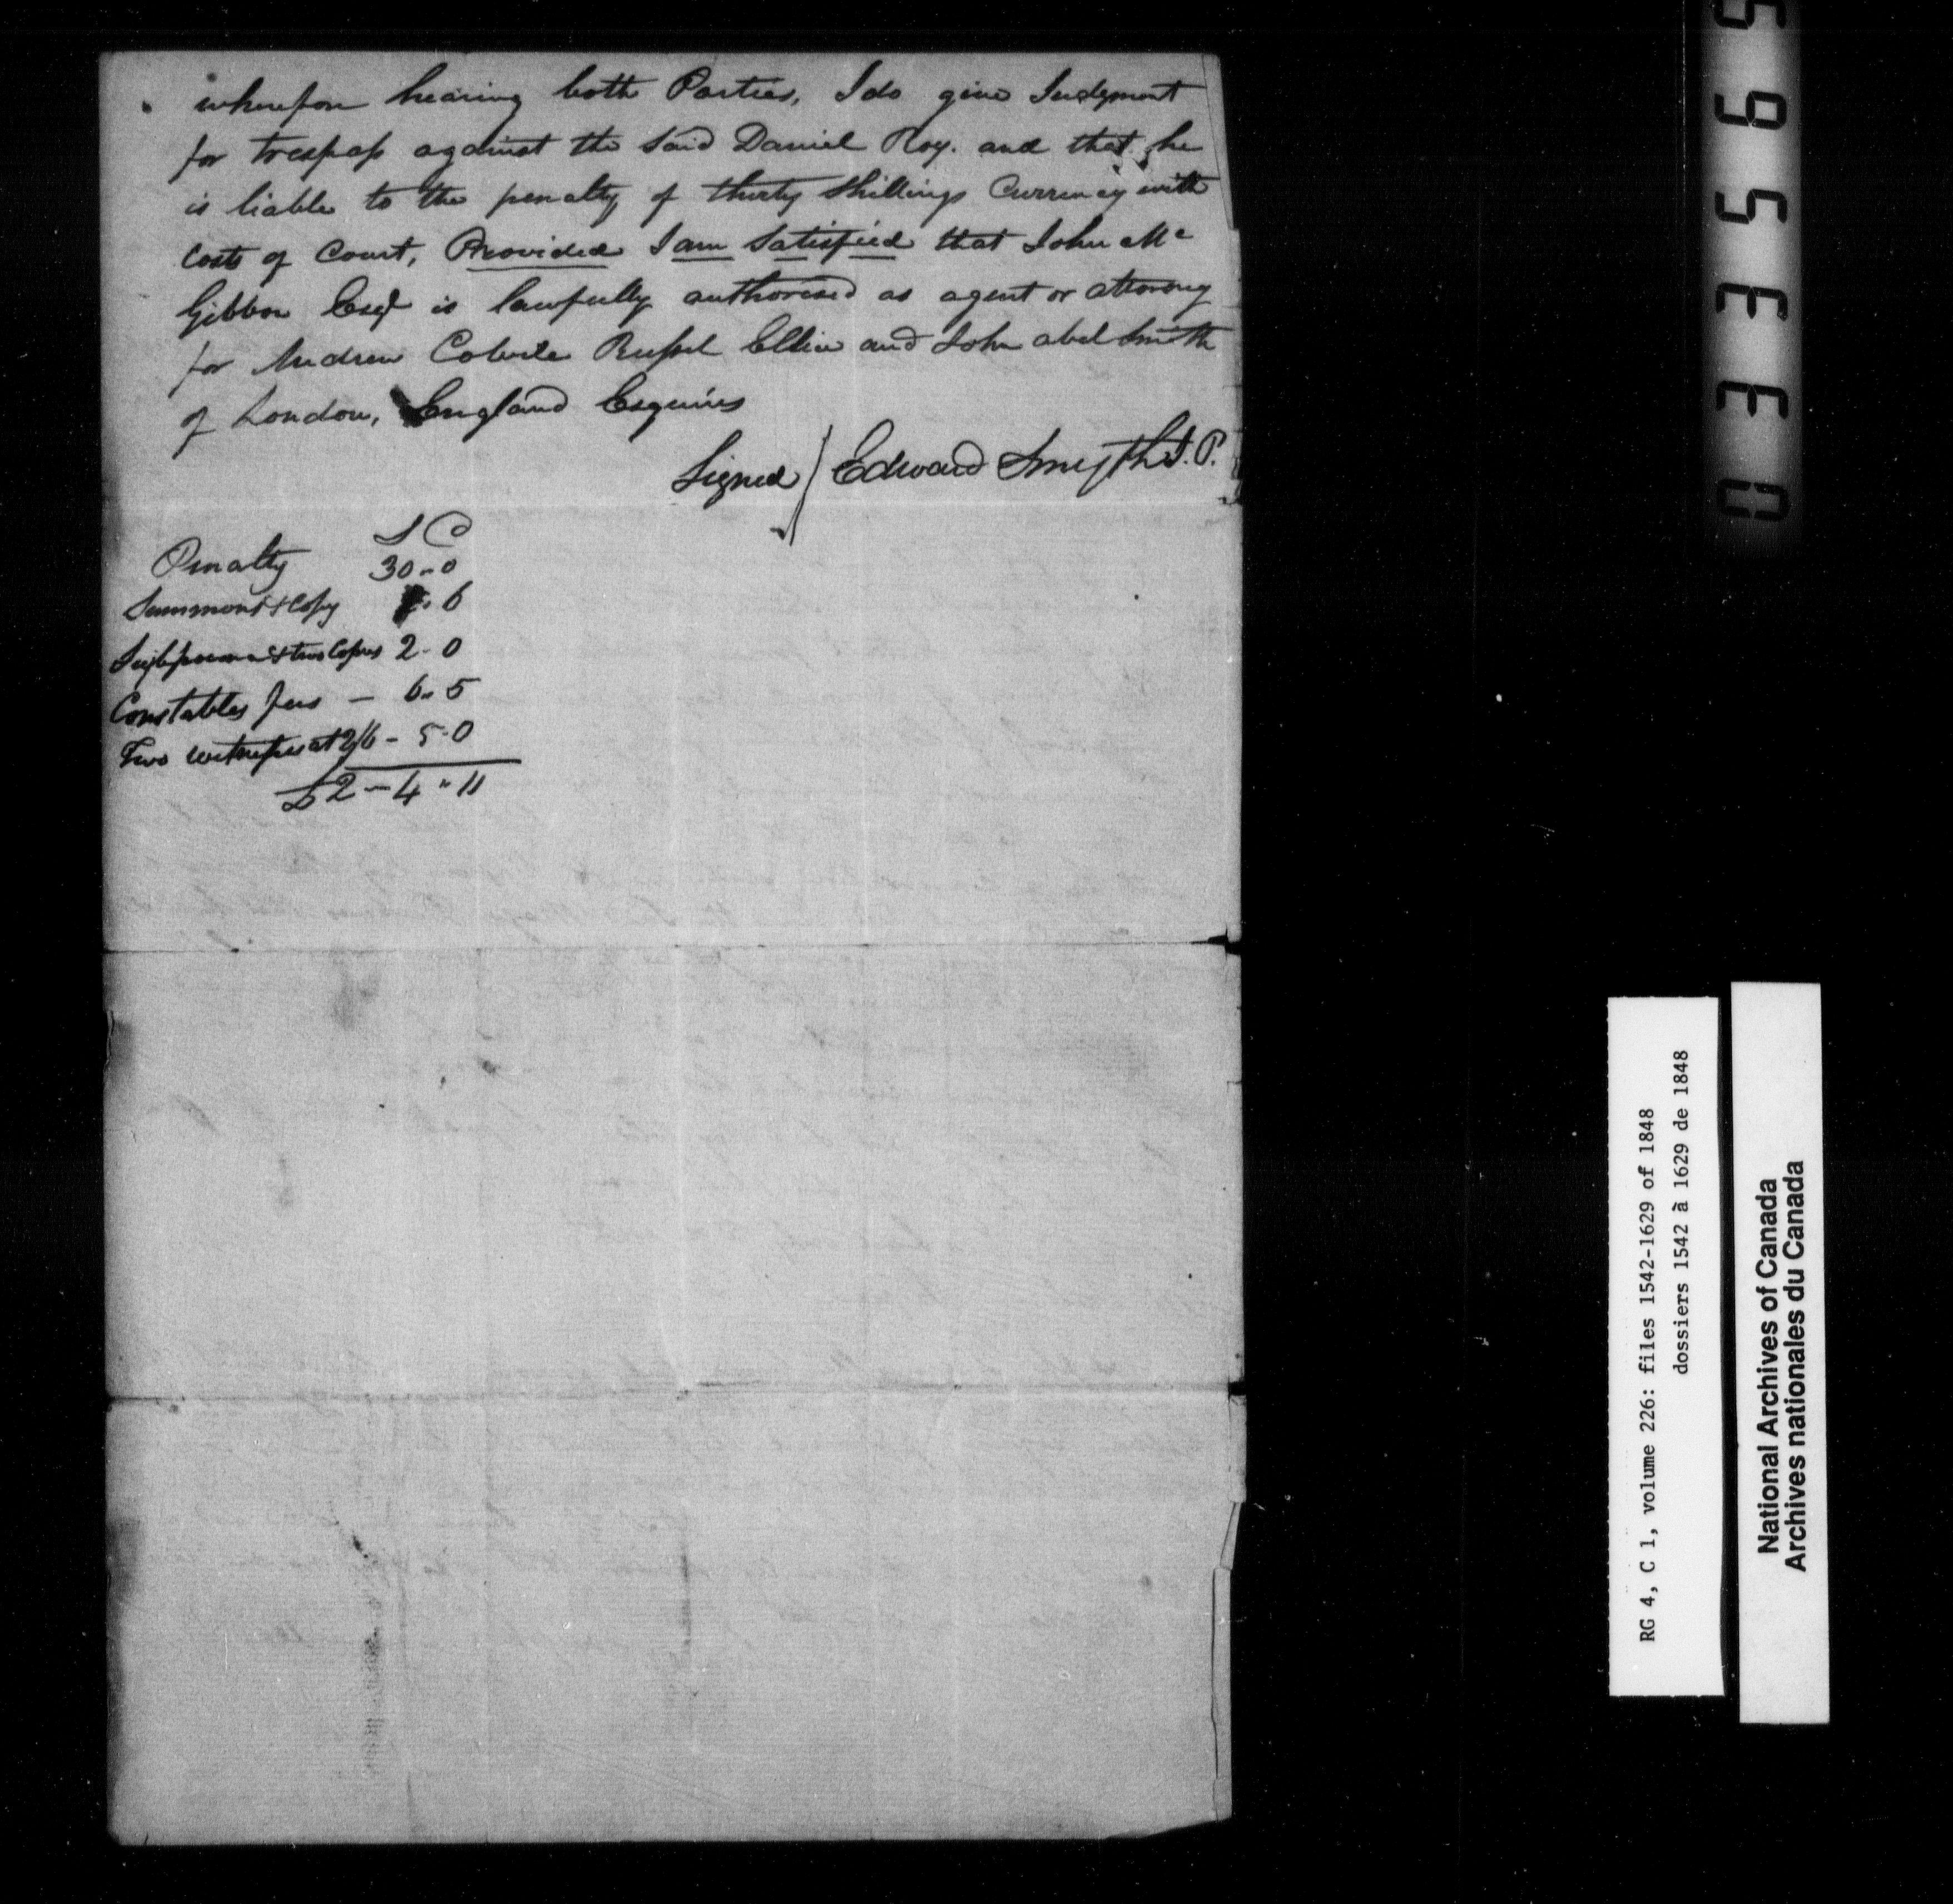 wherefore hearing both Parties, I do give Judgment
for trespass against the said Daniel Roy. and that he
is liable to the penalty of thirty shillings Currency with
costs of Court, Provided I am Satisfied that John Mc
Gibbon Esqr is lawfully authorised as agent or attorney
for Andrew Colvile Russel Ellice and John abel Smith
of London, England Esquires
Signed / Edward Smyth J.P.
S C
Penalty 30-0
Summons & Copy 1-6
Subpoena & two Copies 2-0
Constables fees - 6"5
Two witnesses at 2/6 - 5-0
£2-4"11
035965
RG 4, C 1, volume 226: files 1542-1629 of 1848
dossiers 1542 à 1629 de 1848
National Archives of Canada
Archives nationales du Canada